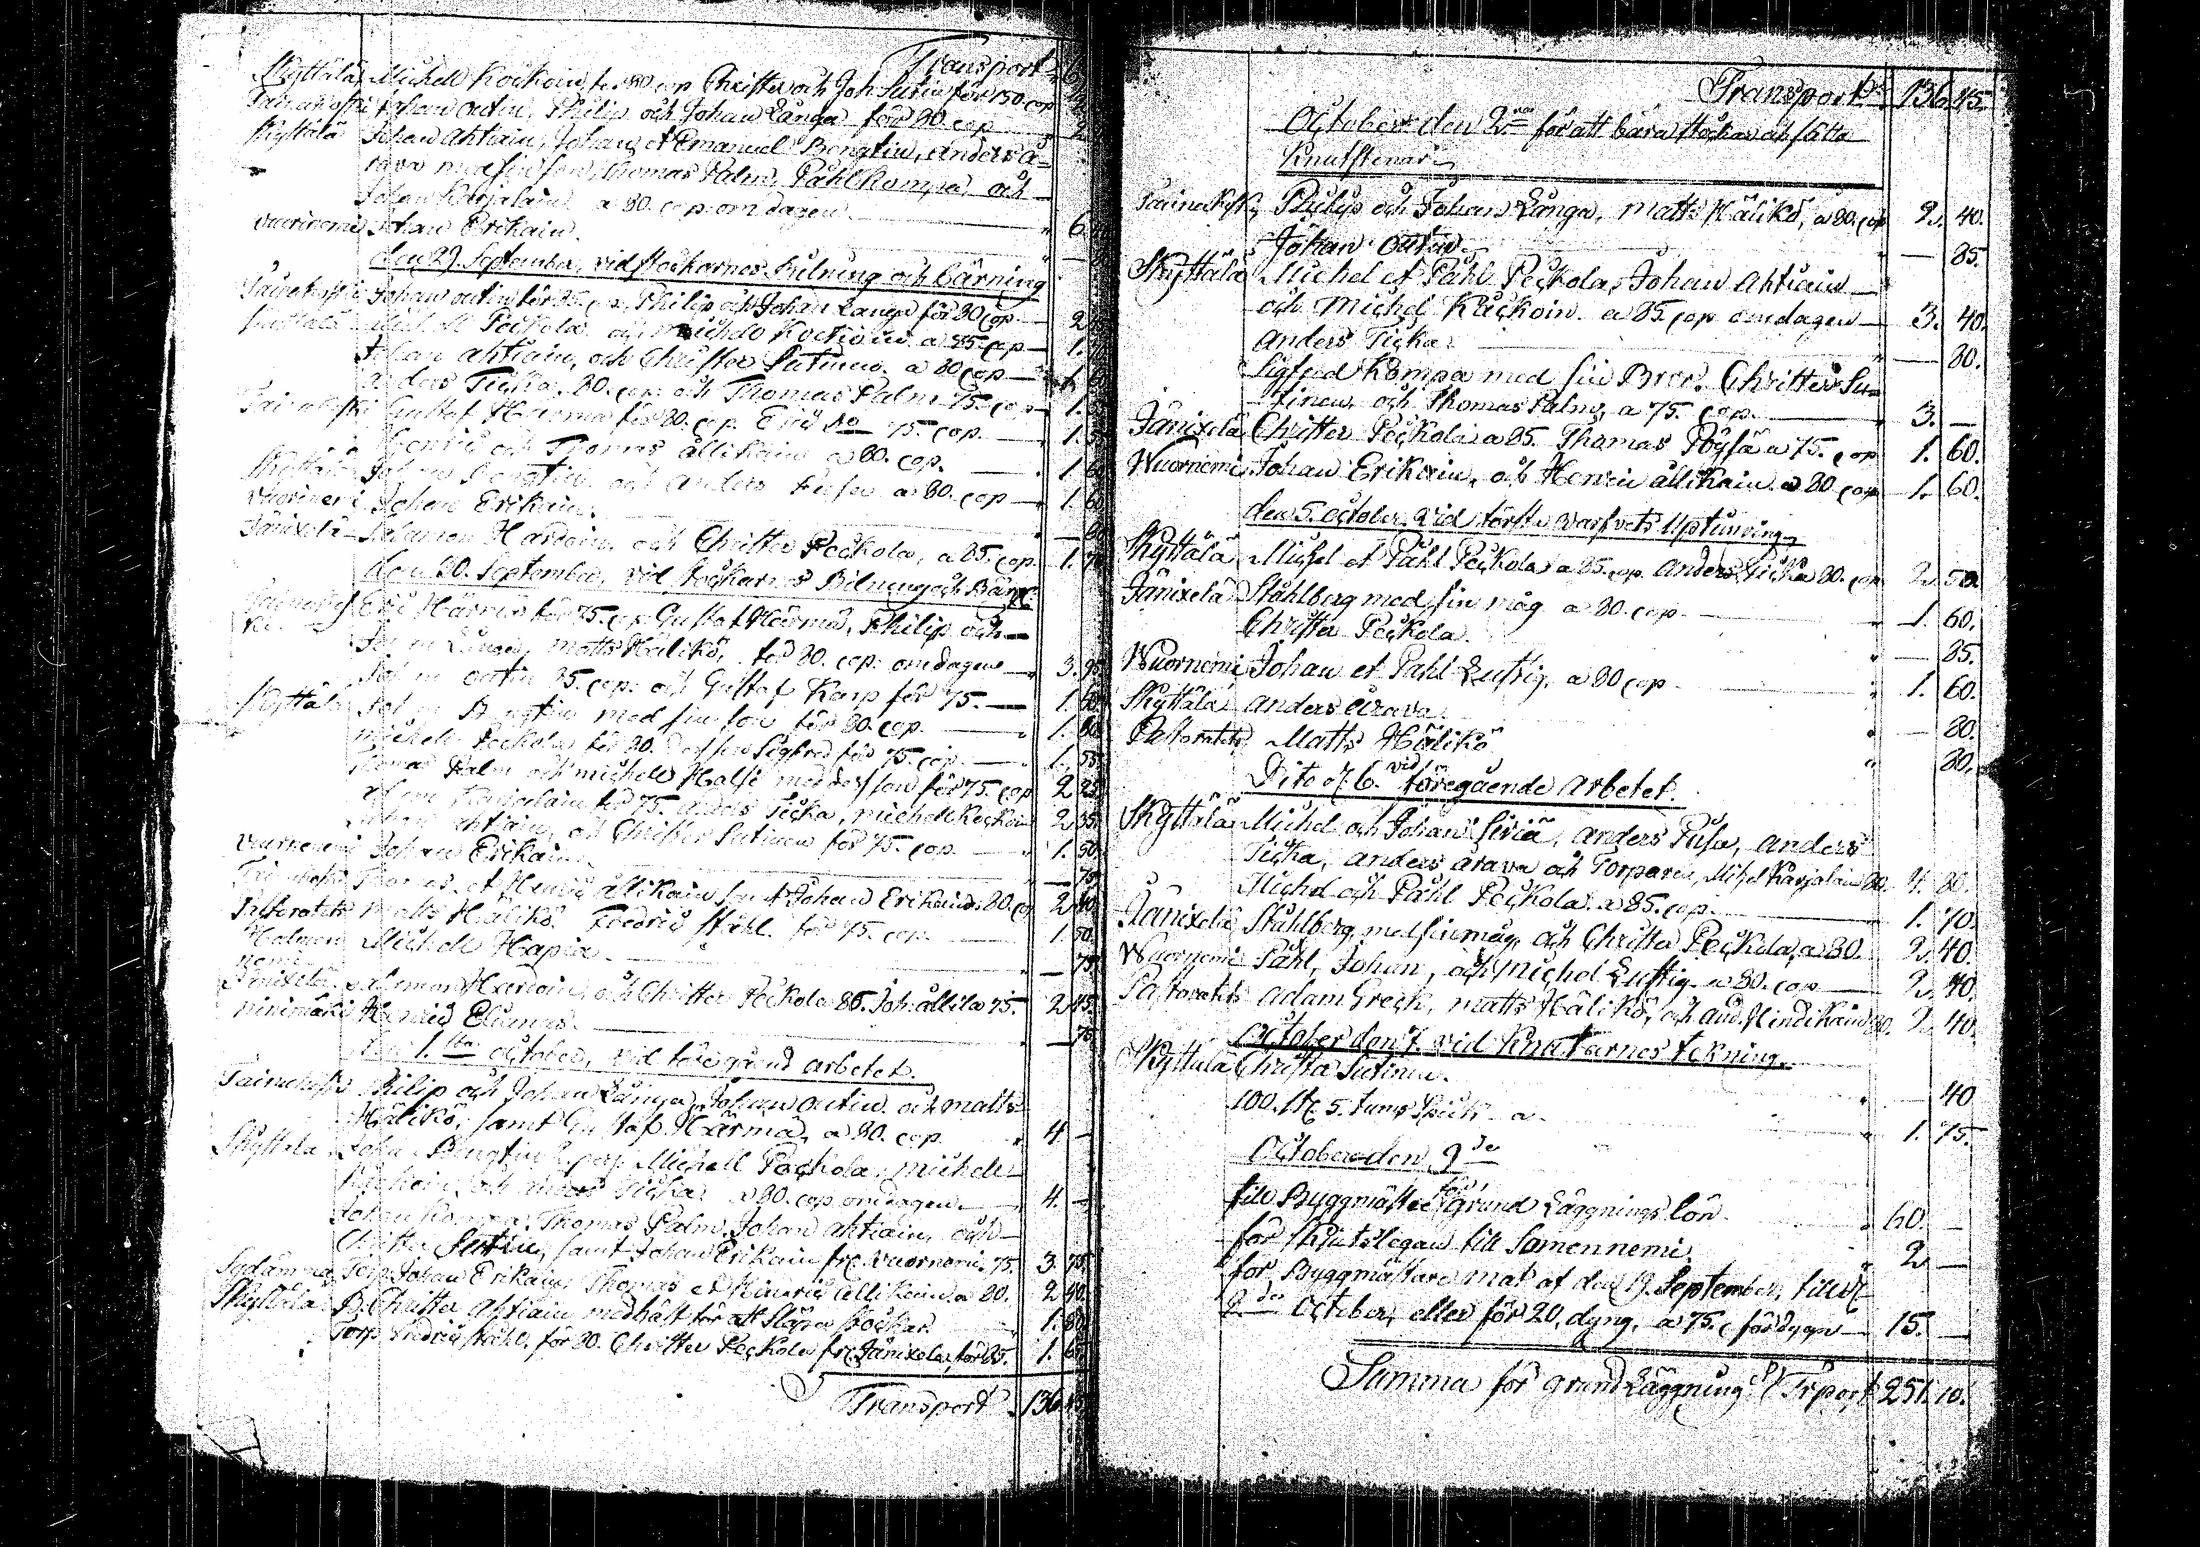 Transport 6
Skyttälä Michell Kockoin för 80 cop Christer och Joh Sutin för 150 cop
Johan Outin, Philip och Johan Långa för 80 cop 2
Skyttälä Johan Ahtiain, Johan et Emanuel Bengtin, Anders A=
rava med sin son, Thomas Palm, Påhl Kompa, och
Johan Karjalain a 80. cop. om dagen 6.
Vuorinemi Johan Erikain.
den 29. September, vid Stockarnes bilning och bärning
Johan Outin för 85. cop Philip och Johan Långa för 80 cop 2
Peckola och Michel Kockoin a 85 cop 1.
Johan Ahtiain, och Christer Sutinen a 80 cop 1.
Anders Ticka. 80. cop och Thomas Palm 75. cop 1.
Gustaf Härmä för 80. cop. Eric do 75. cop. 1.
Henric och Thomas Ållikain a 80. cop. 1. 60
Johan Bengtin och Anders Pusa a 80. cop 1. 60
Vuorinemi Johan Erikain. 80
Jänixelä Salamon Hartoin och Christer Peckola, a 85. cop. 1. 70
den 30. September, vid Stockarnes Bilning och Bärn:
Eric Härmä för 75. cop. Gustaf Härmä, Philip och
Johan Långa, Matts Hälikö, för 80. cop. om dagen 3. 95
Johan Outin 85. cop. och Gustaf Karp för 75. 1. 60
Skyttälä Johan Bengtin med sin son för 80. cop. 1. 60
Michell Peckola för 80. dess son Sigfred för 75. cop. 1. 55
Thomas Palm och Michell Halfe med dess son för 75. cop 2 25
Karjalain för 75. Anders Ticka, Michell Kockoin 2 35
Johan Ahtiain, och Christer Sutinen för 75. cop. 1. 50
Vuornemi Johan Erikain. 75
Thomas et Henric Ållikain samt Johan Erikain 80. cop 2 40
Pastoratets Matts Hälikö. Fredric Ståhl. för 75. cop. 1. 50
Michell Hapia. 75
Jänixelä Salamon Hartoin, och Christer Peckola 85. Joh. Ållila 75. 2 45
Ninimäki Henric 75
den 1.sta October, vid före grund arbetet.
Philip och Johan Långa, Johan Outin och Matts
Hälikö, samt Gustaf Härmä, a 80. cop. 4 –
Skyttälä Johan Bengtin 2 pers. Michell Peckola, Michell
Kockoin och Anders Ticka a 80. cop om dagen. 4. –
Johan Kompa, Thomas Palm, Johan Ahtiain, och
Christer Sutin, samt Johan Erikain frc Vuornemi 75. 3. 75
Sydänma Torp. Johan Erikain, Thomas et Heinric Ållikain a 80. 2 40.
Skyttälä B. Christer Ahtiain med häst för att släpa stockar. 1. 80
Torp. Fredric Ståhl. för 80. Christer Peckola frc Jänixelä, för 85. 1. 65
Transport. 136 45
Transport 136. 45.
October den 2n för att bära stockar och sätta
Knutstenar
Philip och Johan Långa, Matts Hälikö, a 80. cop 2. 40.
Johan Outin. 85.
Skyttälä Michel et Påhl Peckola, Johan Ahtiain
och Michel Kåckoin a 85 cop om dagen 3. 40.
Anders Ticka. 80.
Sigfred Kompa med sin Bror. Christer Su=
tinen och Thomas Palm, a 75. cop. 3. –
Jänixelä Christer Peckola a 85. Thomas Pöysä a 75. cop 1. 60.
Wuornemi Johan Erikain, och Henric Ållikain. a 80 cop 1. 60.
den 5. October vid första varfvets Uptimring
Skyttälä Michel et Påhl Peckola a 85. cop. Anders Ticka 80. cop 2. 50.
Jänixelä Ståhlberg med sin måg a 80. cop. 1. 60.
Christer Peckola. 85.
Wuornemi Johan et Påhl Lustig. a 80 cop. 1. 60.
Skyttälä Anders Arava. 80.
Pastoratets Matts Hälikö 80.
Dito d. 6. vid föregående arbetet.
Skyttälä Michel och Johan Siviä, Anders Pusa, Anders
Ticka, Anders Arava och Torparen, Michel Karjalain 80. 4. 80.
Michel och Påhl Peckola. a 85. cop. 1. 70.
Jänixelä Ståhlberg med sin måg, och Christer Peckola, a 80. 2. 40.
Wuornemi Påhl, Johan, och Michel Lustig. a 80. cop 2. 40.
Pastoratets Adam Greck, Matts Hälikö, och And. Hindikain 80. 2. 40.
October den 7. vid Knutarnes tekning.
Skyttälä Christer Sutinen. 40
100. st. 5. tums Spik a 1. 75.
October den 9de
till Byggmästar för Grund Läggnings lön 60. –
för Skjutslegan till Somennemi 2 –
för Byggmästare mat af den 19. September, till d.
9de October, eller för 20, dygn, a 75. c för dygn 15. –
Summa för grund Läggning Trport 251. 10.